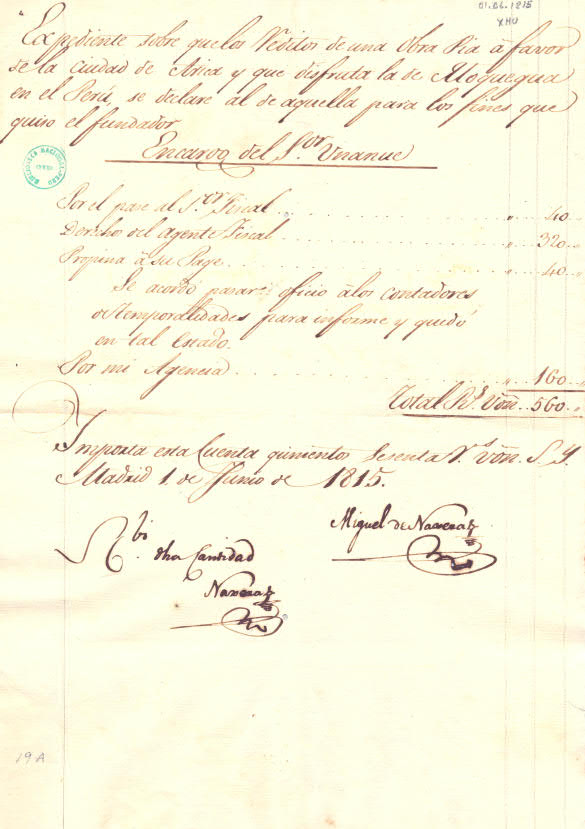 01.06.1815
XHU
Expediente sobre que los Reditos de una Obra Pia à favor
de la ciudad de Arica y que disfruta la de Moquegua
en el Perú, se declare al de aquella para los fines que
quiso el fundador
Encargo del S.or Unanue
BIBLIOTECA NACIONAL
Por el pase al S.or Fiscal 40
Derecho del Agente Fiscal 320
Propina à su Page 40
Se acordó pasar oficio à los contadores
de temporalidades para informe y quedó
en tal estado.
Por mi Agencia 160
Total R.s Von 560
Importa esta Cuenta quinientos sesenta r.s von. S. Y.
Madrid 1. de Junio de 1815.
Miguel de Naveraz
Rbi
dha Cantidad
Naveraz
19A